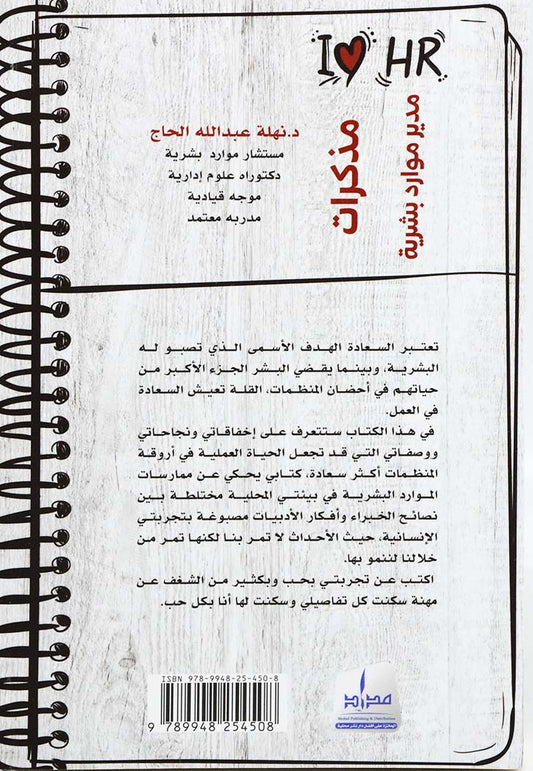 I ❤ HR
مذكرات
مدير موارد بشرية
د.نهلة عبدالله الحاج
مستشار موارد بشرية
دكتوراه علوم إدارية
موجه قيادية
مدربه معتمد
تعتبر السعادة الهدف الأسمى الذي تصبو له
البشرية، وبينما يقضي البشر الجزء الأكبر من
حياتهم في أحضان المنظمات، القلة تعيش السعادة
في العمل.
في هذا الكتاب ستتعرف على إخفاقاتي ونجاحاتي
ووصفاتي التي قد تجعل الحياة العملية في أروقة
المنظمات أكثر سعادة، كتابي يحكي عن ممارسات
الموارد البشرية في بيئتي المحلية مختلطة بين
نصائح الخبراء وأفكار الأدبيات مصبوغة بتجربتي
الإنسانية، حيث الأحداث لا تمر بنا لكنها تمر من
خلالنا لننمو بها.
اكتب عن تجربتي بحب وبكثير من الشغف عن
مهنة سكنت كل تفاصيلي وسكنت لها أنا بكل حب.
ISBN 978-9948-25-450-8
9 789948 254508
مداد
Medad Publishing & Distribution
الحائزة على أفضل دار نشر محلية